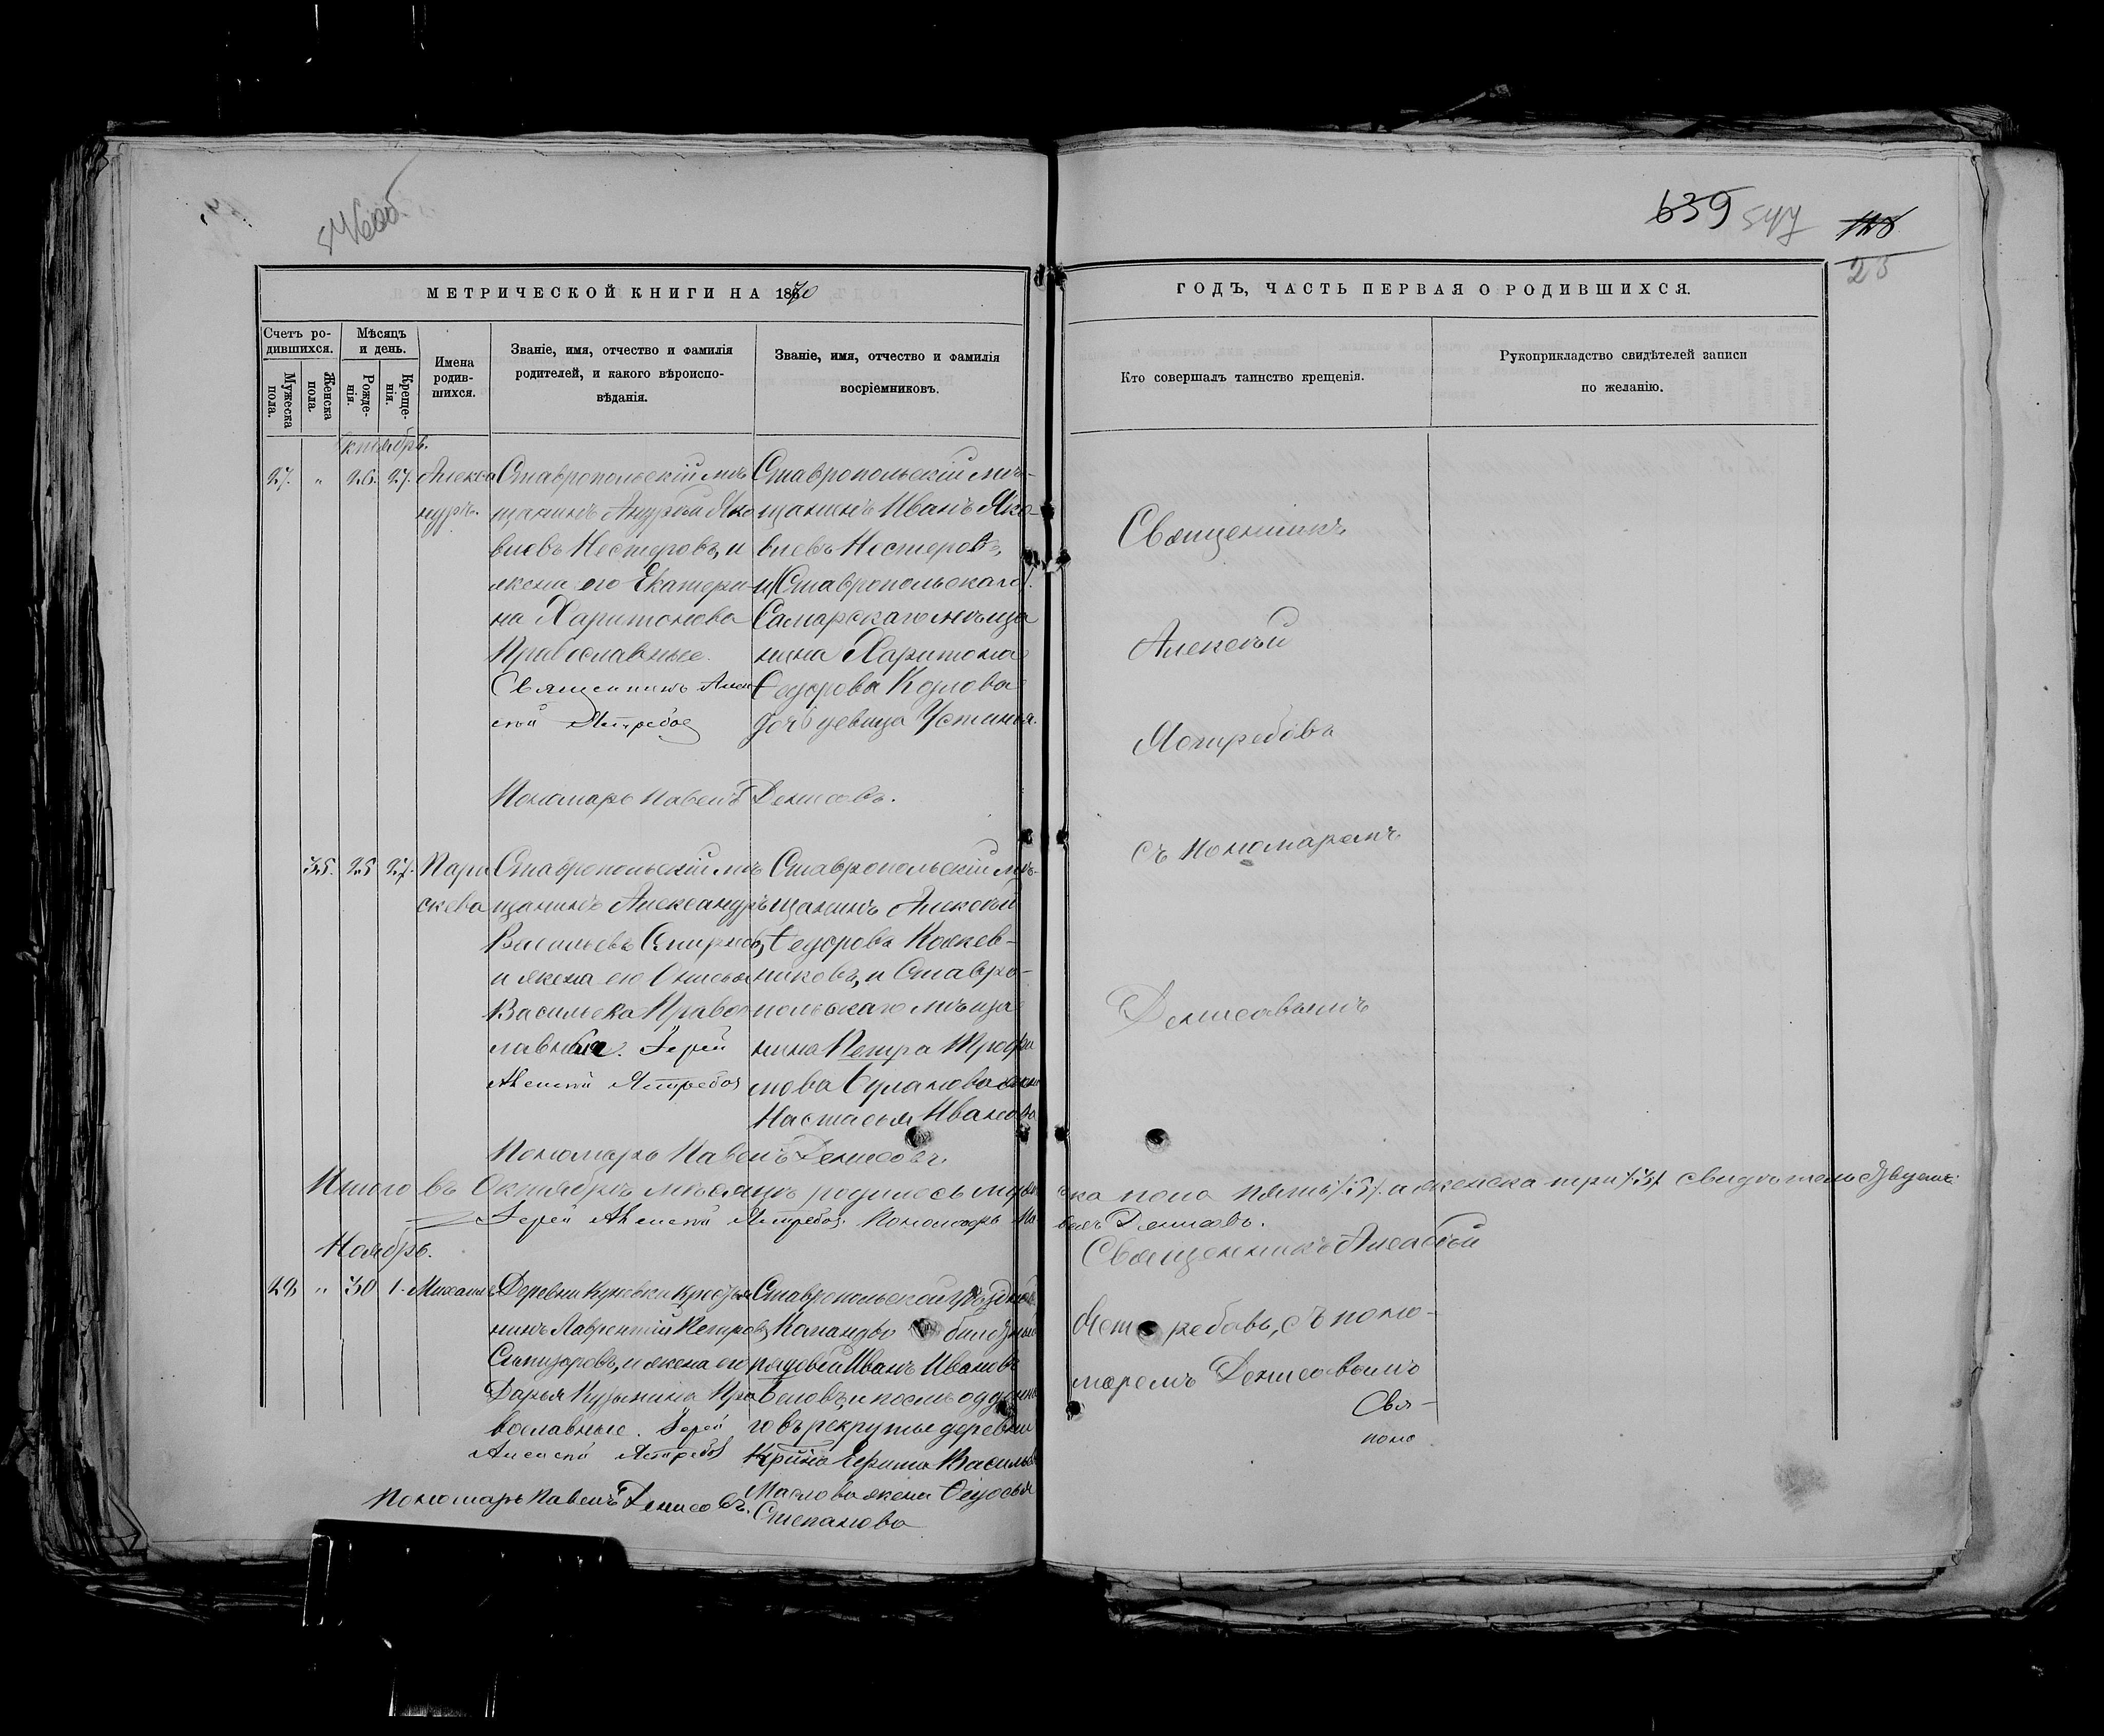 546об
639 547 118
25
МЕТРИЧЕСКОЙ КНИГИ НА 1870
ГОДЪ, ЧАСТЬ ПЕРВАЯ О РОДИВШИХСЯ.
Счетъ ро-
дившихся.
Мужеска
пола.
Женска
пола.
Мѣсяцъ
и день.
Рожде-
нія.
Креще-
нія.
Имена
родив-
шихся.
Званіе, имя, отчество и фамилія
родителей, и какого вѣроиспо-
вѣданія.
Званіе, имя, отчество и фамилія
воспріемниковъ.
Кто совершалъ таинство крещенія.
Рукоприкладство свидѣтелей записи
по желанію.
Октябрь.
27. " 26. 27. Алекса
ндръ.
Ставропольскій мѣ
щанинъ Андрей Яко
влевъ Нестеровъ, и
жена его Екатери-
на Харитонова
Православные.
Священникъ Алек
сѣй Ястребов
Ставропольскій мѣ-
щанинъ Иванъ Яко
влевъ Нестеровъ,
и Ставропольскаго
Самарскаго мѣща
нина Харитона
Ѳедорова Козлова
дочь девица Устинья.
Пономарь Павелъ Денисовъ.
Священникъ
Алексѣй
Ястребовъ
съ Пономаремъ
Денисовымъ
35. 25 27. Пара
скева
Ставропольскій мѣ
щанинъ Александръ
Васильевъ Смирновъ,
и жена его Анисья
Васильева Правос
лавные. Іерей
Алексѣй Ястребов
Ставропольскій мѣ-
щанинъ Алексѣй
Ѳедоровъ Кожев-
никовъ, и Ставро-
польскаго мѣща
нина Петра Трофи
мова жена
Настасья Иванова
Пономарь Павелъ Денисовъ.
Итого въ Октябрѣ мѣсяцѣ родилось муже ска пола пять /5/. а женска три /3/.
Іерей Алексѣй Ястребов. Пономарь Па велъ Денисовъ.
Ноябрь.
28 " 30 1. Михаилъ
Деревни крестья
нинъ Лаврентій Петровъ
и жена его
Дарья Кузьмина Пра
вославные. Іерей
Алексѣй Ястребов
Ставропольской уѣздной
Команды
рядовой Иванъ Ивановъ
Бѣловъ, и
го въ рекруты деревни
Ефима Васильева
Маслова жена Ѳедосья
Степанова
Пономарь Павелъ Денисовъ.
Священникъ Алексѣй
Ястребовъ, съ поно-
маремъ Денисовымъ
Свя-
поно